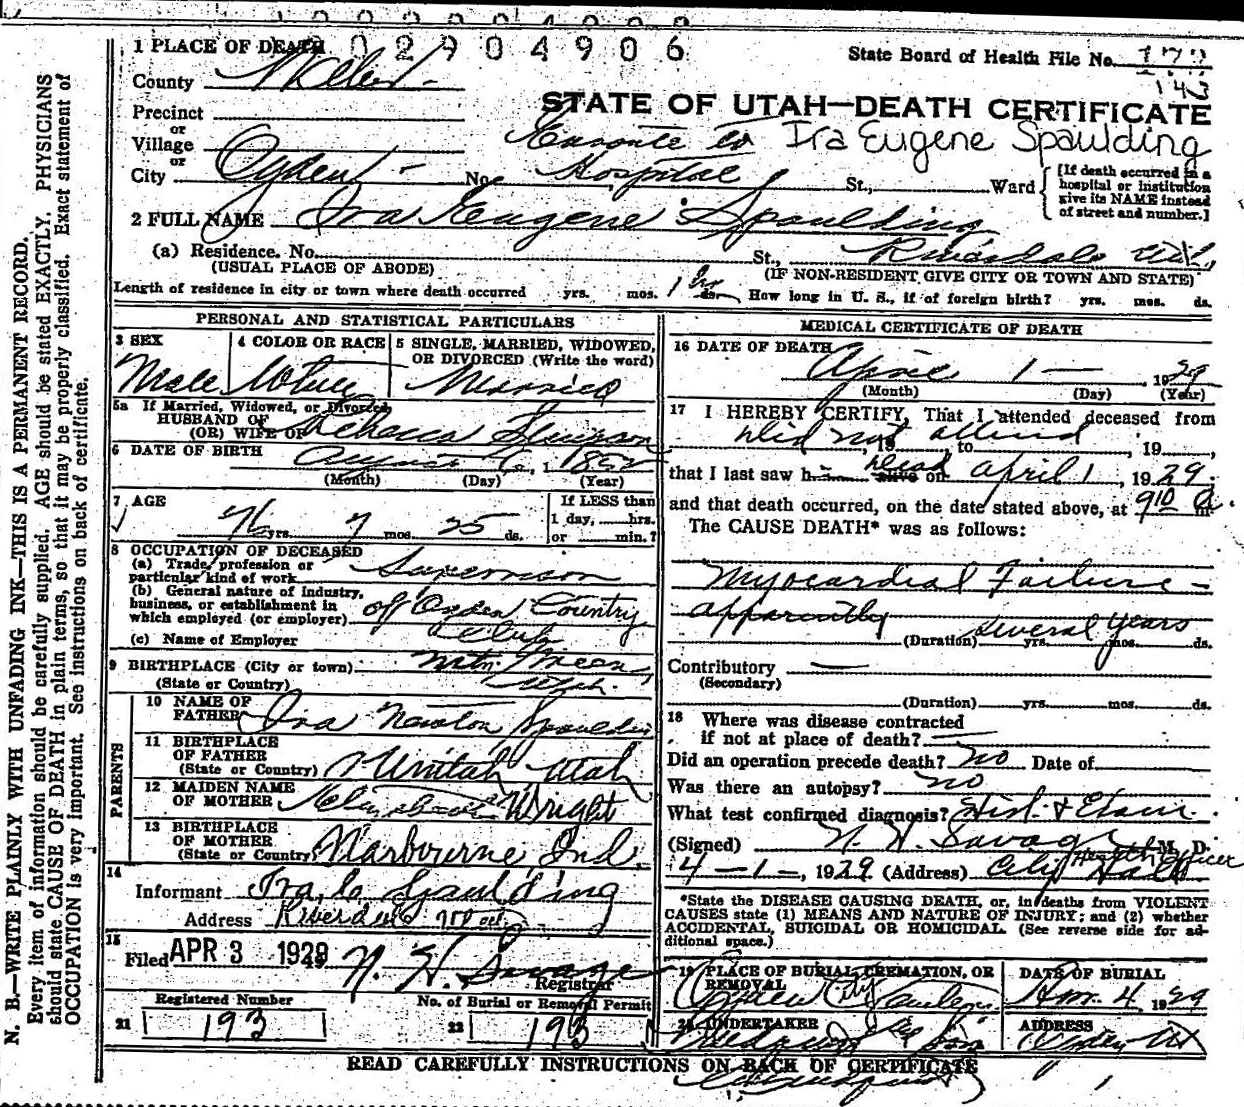 1002904906
State Board of Health File No. 172
143
1 PLACE OF DEATH
County Weber
STATE OF UTAH—DEATH CERTIFICATE
Precinct
or
Village
Enroute to Ira Eugene Spaulding
or
City Ogden No. Hospital St., Ward
[If death occurred in a
hospital or institution
give its NAME instead
of street and number.]
2 FULL NAME Ira Eugene Spaulding
(a) Residence. No. St., Riverdale Ut.,
(USUAL PLACE OF ABODE) (IF NON-RESIDENT GIVE CITY OR TOWN AND STATE)
Length of residence in city or town where death occurred yrs. mos. 1 ds. How long in U. S., if of foreign birth? yrs. mos. ds.
PERSONAL AND STATISTICAL PARTICULARS
3 SEX 4 COLOR OR RACE 5 SINGLE, MARRIED, WIDOWED,
OR DIVORCED (Write the word)
Male White Married
5a If Married, Widowed, or Divorced
HUSBAND OF
(OR) WIFE OF Rebecca
6 DATE OF BIRTH August 6, 1852
(Month) (Day) (Year)
7 AGE If LESS than
1 day, hrs.
76 yrs. 7 mos. 25 ds. or min.?
8 OCCUPATION OF DECEASED
(a) Trade, profession or
particular kind of work
(b) General nature of industry,
business, or establishment in
which employed (or employer) of Ogden Country
Club
(c) Name of Employer
9 BIRTHPLACE (City or town) Mtn. Green
(State or Country) Utah.
PARENTS
10 NAME OF
FATHER Ira Newton Spaulding
11 BIRTHPLACE
OF FATHER
(State or Country) Uintah Utah
12 MAIDEN NAME
OF MOTHER Wright
13 BIRTHPLACE
OF MOTHER
(State or Country) Ind.
14
Informant Ira C. Spaulding
Address Riverdale
15
Filed APR 3 1929 N. H. Savage
Registrar
Registered Number No. of Burial or Removal Permit
21 193 22 193
MEDICAL CERTIFICATE OF DEATH
16 DATE OF DEATH
April 1 — , 1929
(Month) (Day) (Year)
17 I HEREBY CERTIFY, That I attended deceased from
Did not attend
, 19 , to , 19 ,
that I last saw h alive on Dead April 1, 1929.
and that death occurred, on the date stated above, at 9 10 a m.
The CAUSE DEATH* was as follows:
Myocardial Failure —
apparently
(Duration) several years yrs. mos. ds.
Contributory —
(Secondary)
(Duration) yrs. mos. ds.
18 Where was disease contracted
if not at place of death? —
Did an operation precede death? no Date of
Was there an autopsy? no
What test confirmed diagnosis? Hist. & Exam.
(Signed) N. H. Savage M. D.
Health Officer
4 — 1 — , 1929 (Address) City Hall
*State the DISEASE CAUSING DEATH, or, in deaths from VIOLENT
CAUSES state (1) MEANS AND NATURE OF INJURY; and (2) whether
ACCIDENTAL, SUICIDAL OR HOMICIDAL. (See reverse side for ad-
ditional space.)
19 PLACE OF BURIAL, CREMATION, OR
REMOVAL
Ogden City
DATE OF BURIAL
Apr. 4 1929
20 UNDERTAKER
ADDRESS
Ogden Ut
READ CAREFULLY INSTRUCTIONS ON BACK OF CERTIFICATE
N. B.—WRITE PLAINLY WITH UNFADING INK—THIS IS A PERMANENT RECORD.
Every item of information should be carefully supplied. AGE should be stated EXACTLY. PHYSICIANS
should state CAUSE OF DEATH in plain terms, so that it may be properly classified. Exact statement of
OCCUPATION is very important. See instructions on back of certificate.